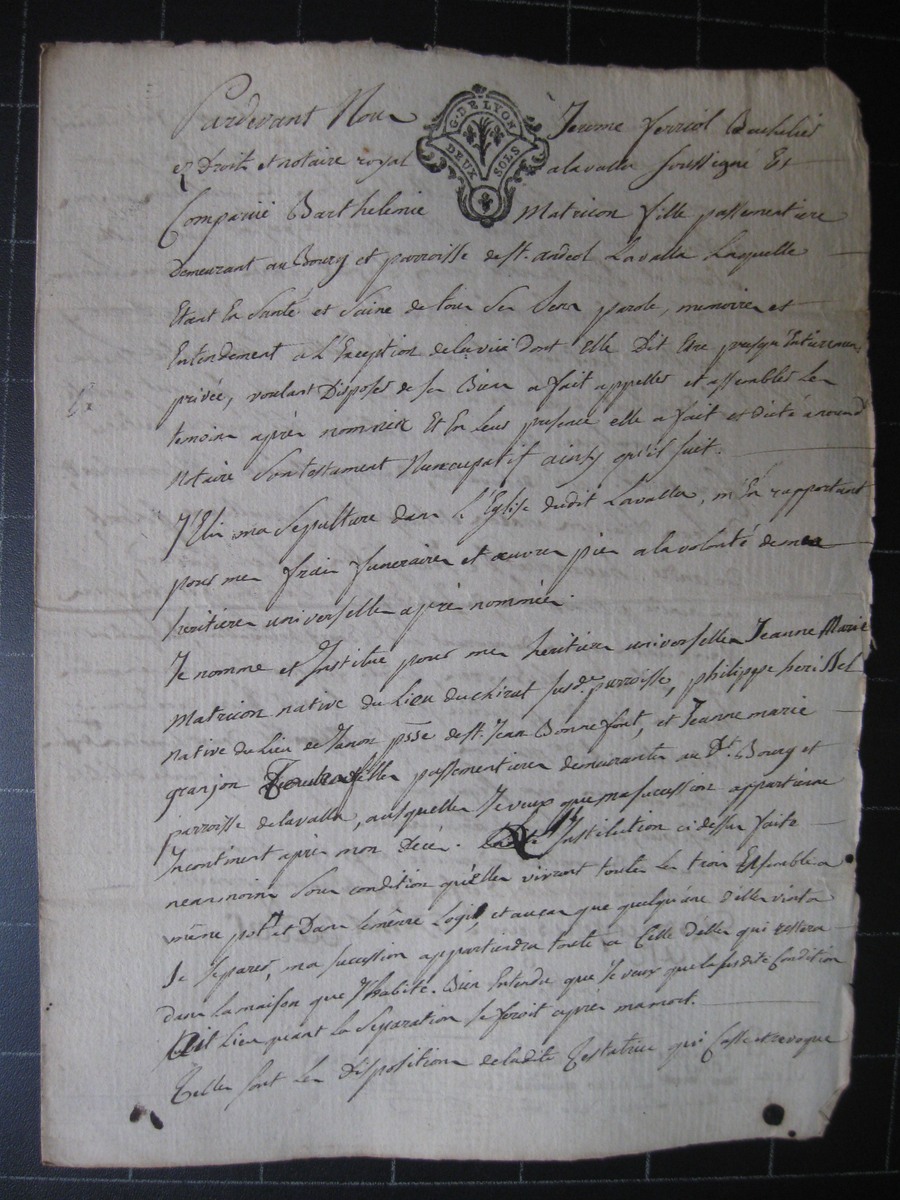 Pardevant Nous Jerome ferreol Bachelier
G. DE LYON
DEUX SOLS
en Droit et notaire royal a lavalla soussigné Est
Comparüe Barthelemie Matricon fille passementiere
demeurant au Bourg et parroisse de st. andeol Lavalla Laquelle
Etant En Santé et Saine de tous Ses Sens parole, memoire et
Entendement a L'Exception de la vüe dont Elle Dit Etre presqu'Entieremen
privée, voulant Disposer de ses Biens a fait appeller et assembler les
temoins après nommés Et En Leur presence elle a fait et dicté a nousd
Notaire Son testament Nuncupatif ainsy qu'il suit.
J'Elis ma Sepulture dans L'Eglise dudit Lavalla, m'En rapportant
pour mes frais funeraires et œuvres pies a la volonté de mes
heritieres universelles après nommées.
Je nomme et Institue pour mes heritieres universelles Jeanne Marie
Matricon native du Lieu du chirat susde. parroisse, philippe herissel
native du Lieu de Janon psse de st. Jean Bonnefont, et Jeanne marie
granjon filles passementieres demeurantes au Dt. Bourg et
parroisse de lavalla, auxquelles Je veux que ma sucession appartienne
Incontinent après mon Décès. L'Institution ci dessus faite
neanmoins sous condition qu'elles vivront toutes les trois Ensemble a
même pot et Dans le même Logis, et au cas que quelqu'une d'elles vint a
Se Separer, ma sucession appartiendra toute a Celle d'elles qui restera
dans la maison que J'habite. Bien Entendu que Je veux que la susdite Condition
ait Lieu quant la Separation se feroit après ma mort.
Telles sont les Dispositions de ladite Testatrice qui Casse et revoque